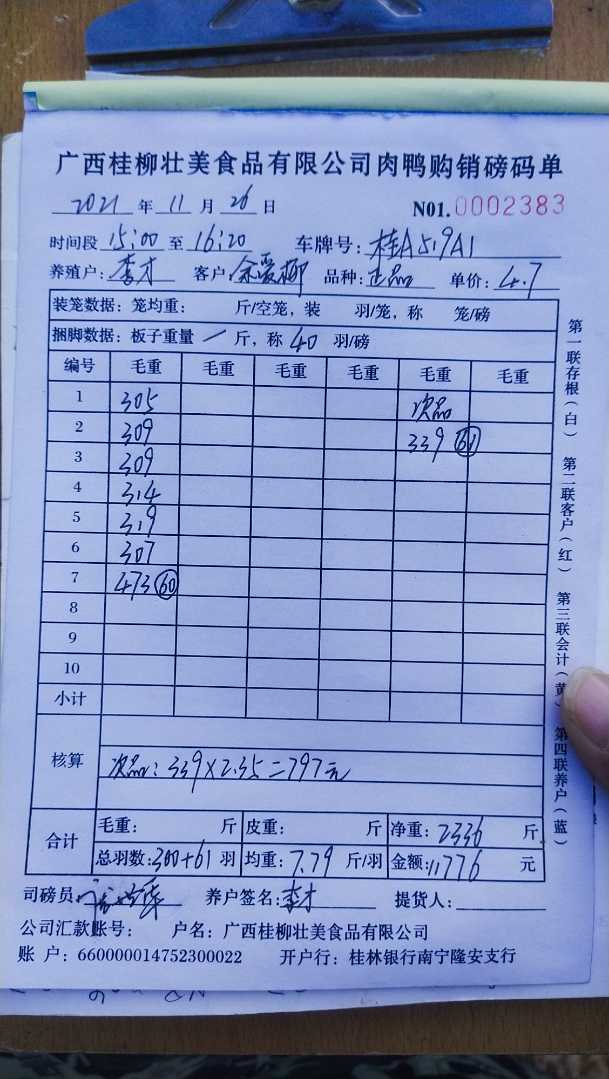 广西桂柳壮美食品有限公司肉鸭购销磅码单
2021 年 11 月 26 日 N01.0002383
时间段 15:00 至 16:20 车牌号: 桂A519A1
养殖户: 李才 客户: 余爱柳 品种: 正品 单价: 4.7
装笼数据: 笼均重: 斤/空笼, 装 羽/笼, 称 笼/磅
捆脚数据: 板子重量 一 斤, 称 40 羽/磅
编号 毛重 毛重 毛重 毛重 毛重 毛重
1 305 次品
2 309 339 61
3 309
4 314
5 319
6 307
7 473 60
8
9
10
小计
核算 次品: 339×2.35=797元
合计 毛重: 斤 皮重: 斤 净重: 2336 斤
总羽数: 300+61 羽 均重: 7.79 斤/羽 金额: 11776 元
司磅员: 养户签名: 李才 提货人:
公司汇款账号: 户名: 广西桂柳壮美食品有限公司
账 户: 660000014752300022 开户行: 桂林银行南宁隆安支行
第一联存根(白) 第二联客户(红) 第三联会计(黄) 第四联养户(蓝)